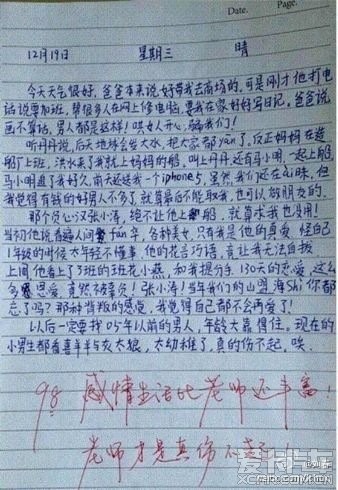 Date.    Page.
12月19日    星期三    晴
今天天气很好，爸爸本来说好带我去商场的，可是刚才他打电
话说要加班，帮很多人在网上修电脑，要我在家好好写日记。爸爸说
话不算话，男人都是这样！哄女人开心，骗我们！
听丹丹说，后天地球会发大水，把大家都yan了。反正妈妈在造
船厂上班，洪水来了我就上妈妈的船，叫上丹丹还有马小明，一起上船。
马小明追了我好久，前天还送我一个iphone5，虽然我们还在ai昧，但
我觉得有钱的好男人不多了，就算最后不能娶我，也可以做朋友的。
那个负心汉张小涛，绝不让他上船，就算求我也没用！
当初他说看遍人间fan华，各种美女，只有我是他的真爱，怪自己
1年级的时候太年轻不懂事，他的花言巧语，竟让我无法自拔
上周他看上了3班的班花小燕，和我提分手，130天的恋爱，这么
多恩爱，竟然不辞而
忘了吗？那种背叛的感觉，我觉得自己都不会再爱了！
以后一定要找05年以前的男人，年龄大靠得住。现在的
小男生都看喜羊羊与灰太狼，太幼稚了，真的伤不起，唉
98 感情生活比老师还丰富！
老师才是真伤不起
爱卡汽车